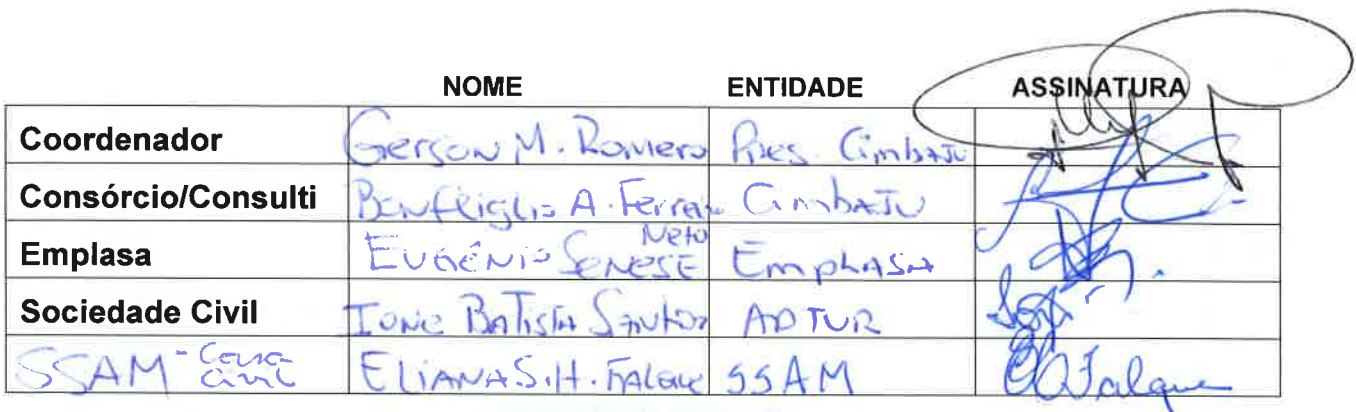 NOME ENTIDADE ASSINATURA
Coordenador Gerson M. Romero Pres. Cimbaju
Consórcio/Consulti A. Ferrar Cimbaju
Emplasa Eugênio Senese Neto Emplasa
Sociedade Civil Ione Batista Santos ADTUR
SSAM - Casa Civil Eliana S. H. Falque SSAM EQFalque